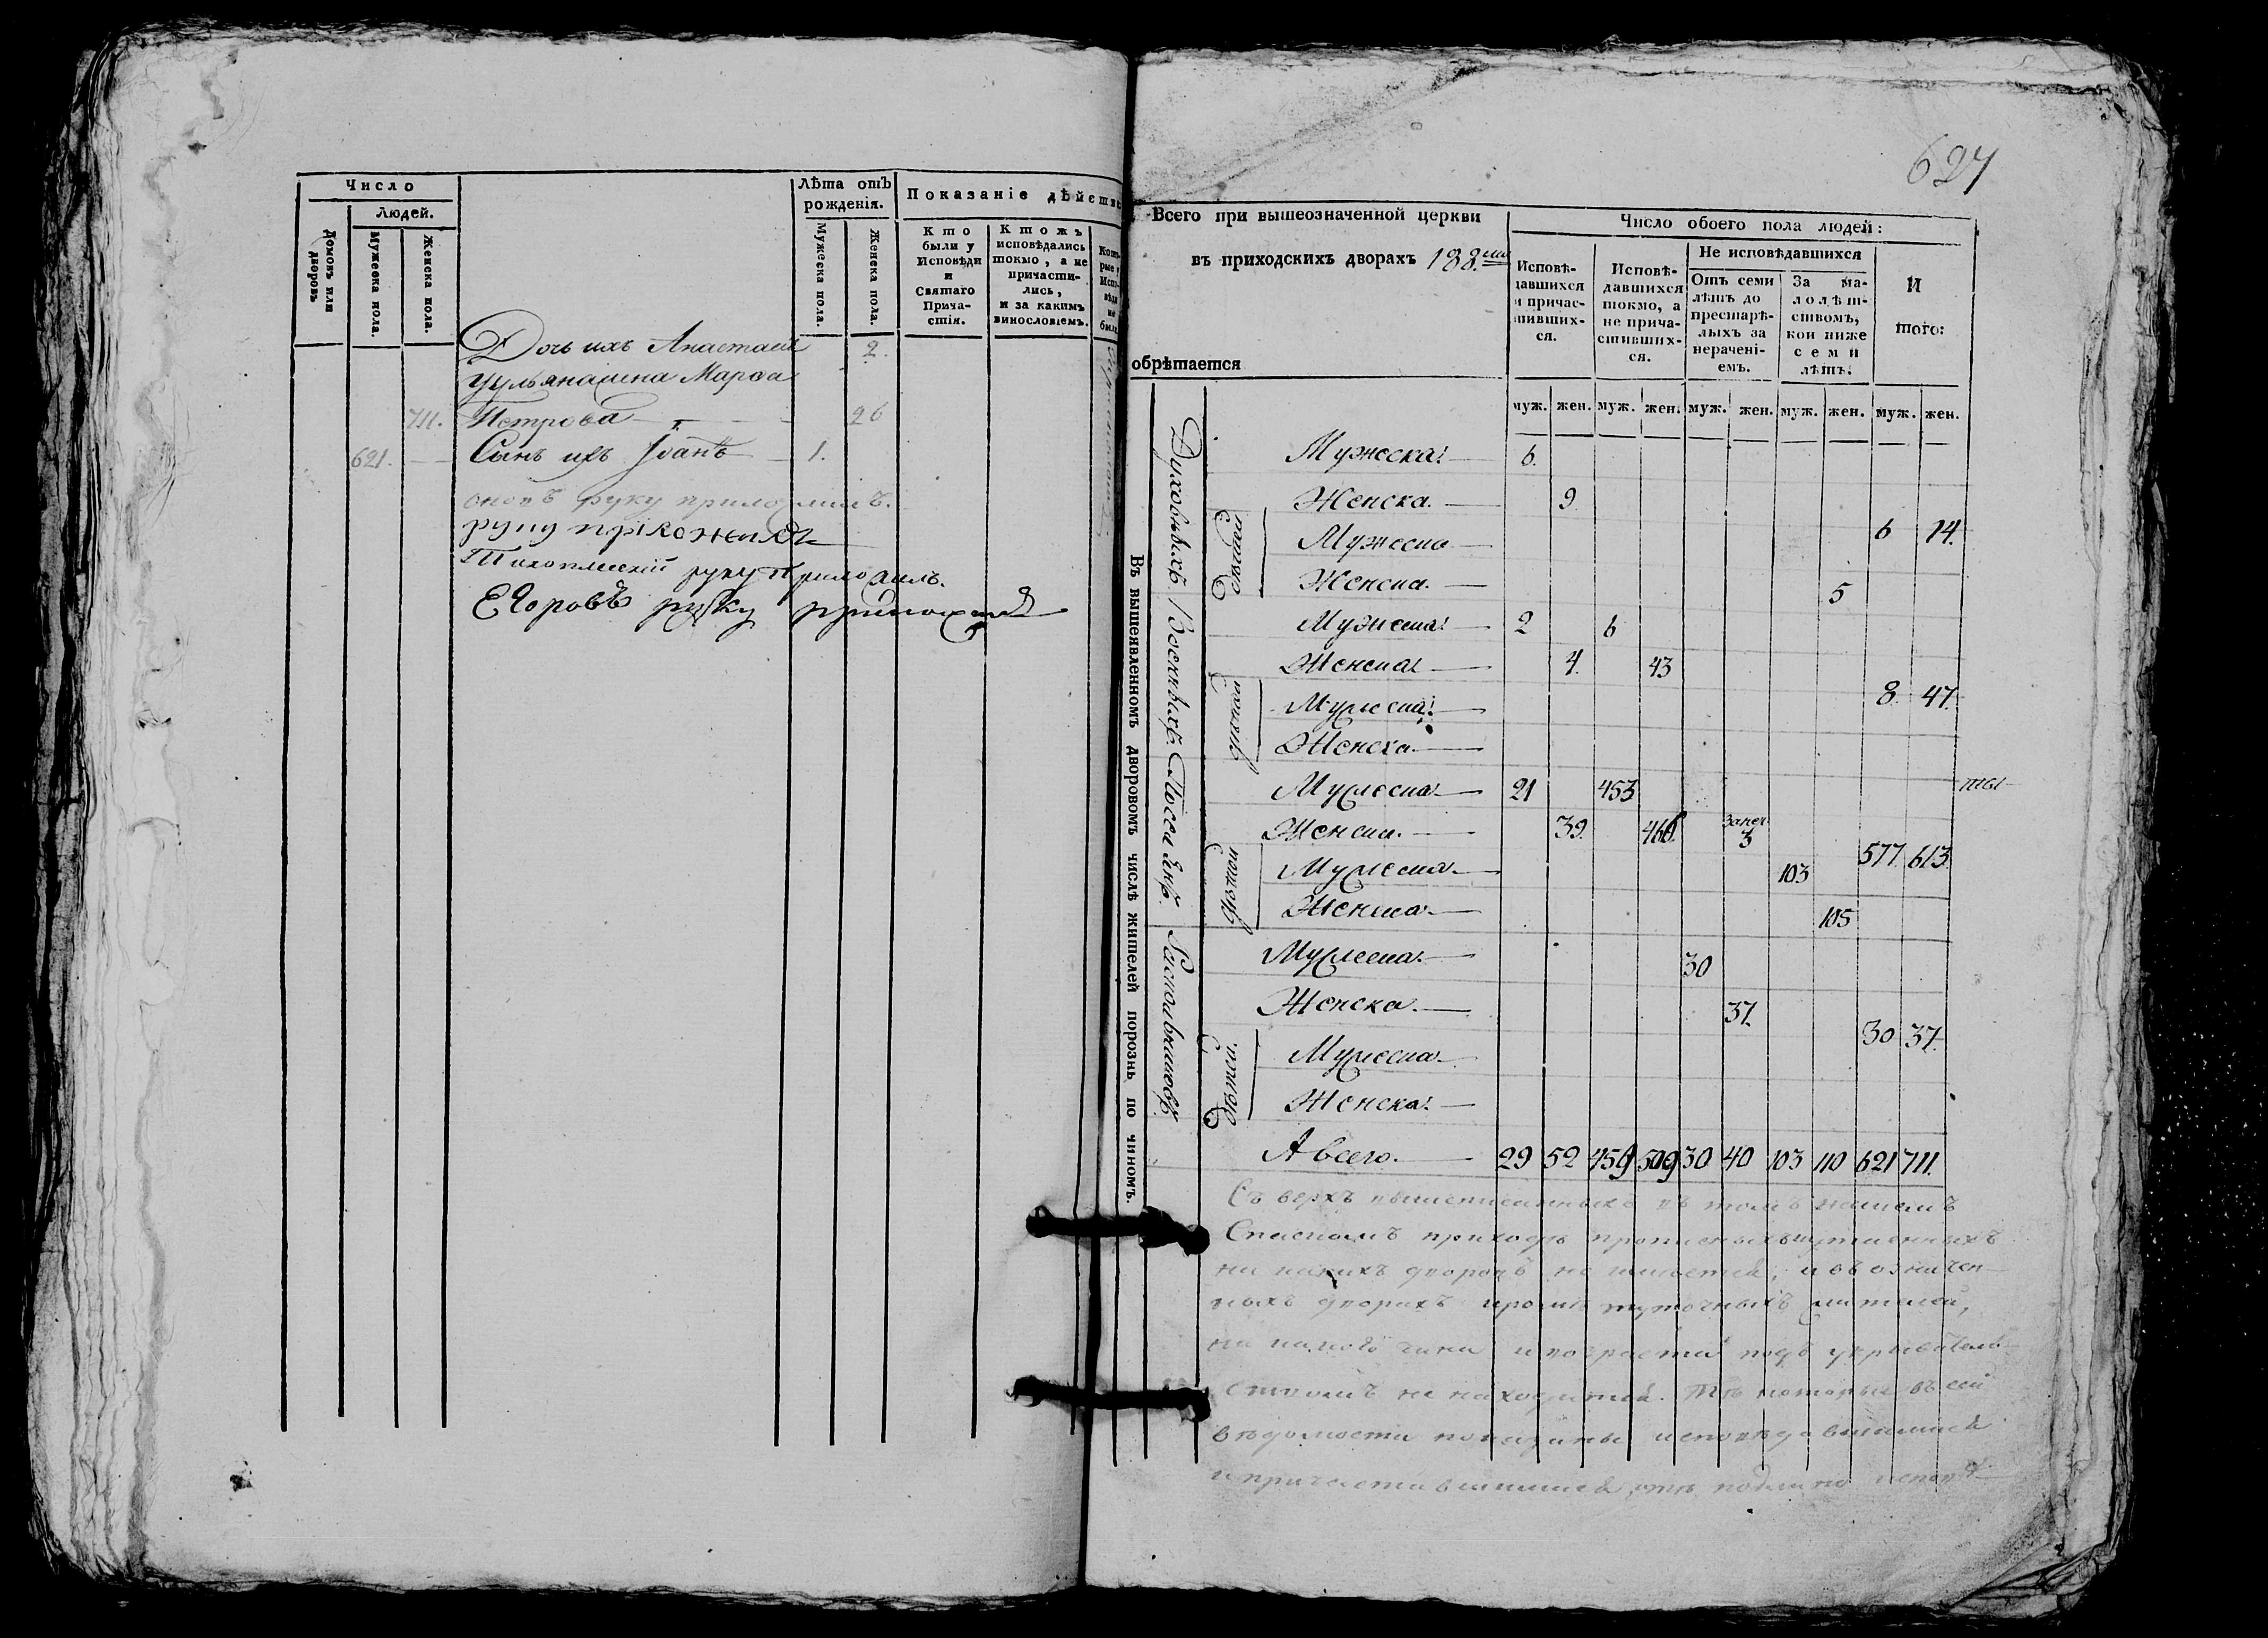 Число
Людей.
Домовъ или дворовъ
Мужеска пола.
Женска пола.
Лѣта отъ рожденія.
Мужеска пола.
Женска пола.
Показаніе дѣйств
Кто были у Исповѣди и Святаго Причастія.
Ктожъ исповѣдались токмо, а не причастились, и за какимъ винословіемъ.
Дочь ихъ Анастасія 2.
Марѳа
711. Петрова 26
621. Сынъ ихъ Іоаннъ 1.
руку приложилъ.
руку приложилъ
руку приложилъ.
Егоровъ руку приложилъ
627
Всего при вышеозначенной церкви
въ приходскихъ дворахъ 188.ми
обрѣтается
Число обоего пола людей:
Исповѣдавшихся и причастившихся.
Исповѣдавшихся токмо, а не причастившихся.
Не исповѣдавшихся
Отъ семи лѣтъ до престарѣлыхъ за нерачені-емъ.
За малолѣтствомъ, кои ниже семи лѣтъ.
Итого:
муж. жен. муж. жен. муж. жен. муж. жен. муж. жен.
Въ вышеявленномъ дворовомъ числѣ жителей порознь по чиномъ.
Духовныхъ.
Мужеска. 6.
Женска. 9
6 14.
Дѣтей
Мужеска
Женска. 5
Военныхъ.
Мужеска. 2 6
Женска. 4. 43
8. 47.
Мужеска.
Женска.
Поселянъ.
Мужеска 21 453
Женска. 39. 466. 3
577. 613.
Мужеска 103
Женска 105
Раскольниковъ.
Мужеска. 30
Женска. 37.
30 37.
Мужеска
Женска.
А всего. 29 52 459 509 30 40 103 110 621 711.
Съ верхъ вышеписанныхъ въ томъ нашемъ
Спаскомъ приходѣ прописныхъ и утаенныхъ
ни какихъ дворовъ не имеется, и въ означен-
ныхъ дворахъ кромѣ жителей,
ни какого чина и возраста подъ укрывательствомъ не находится. Тѣ которые въ сей
вѣдомости показаны исповѣдовавшимися
и причастившимися, тѣ подлинно исповѣ-